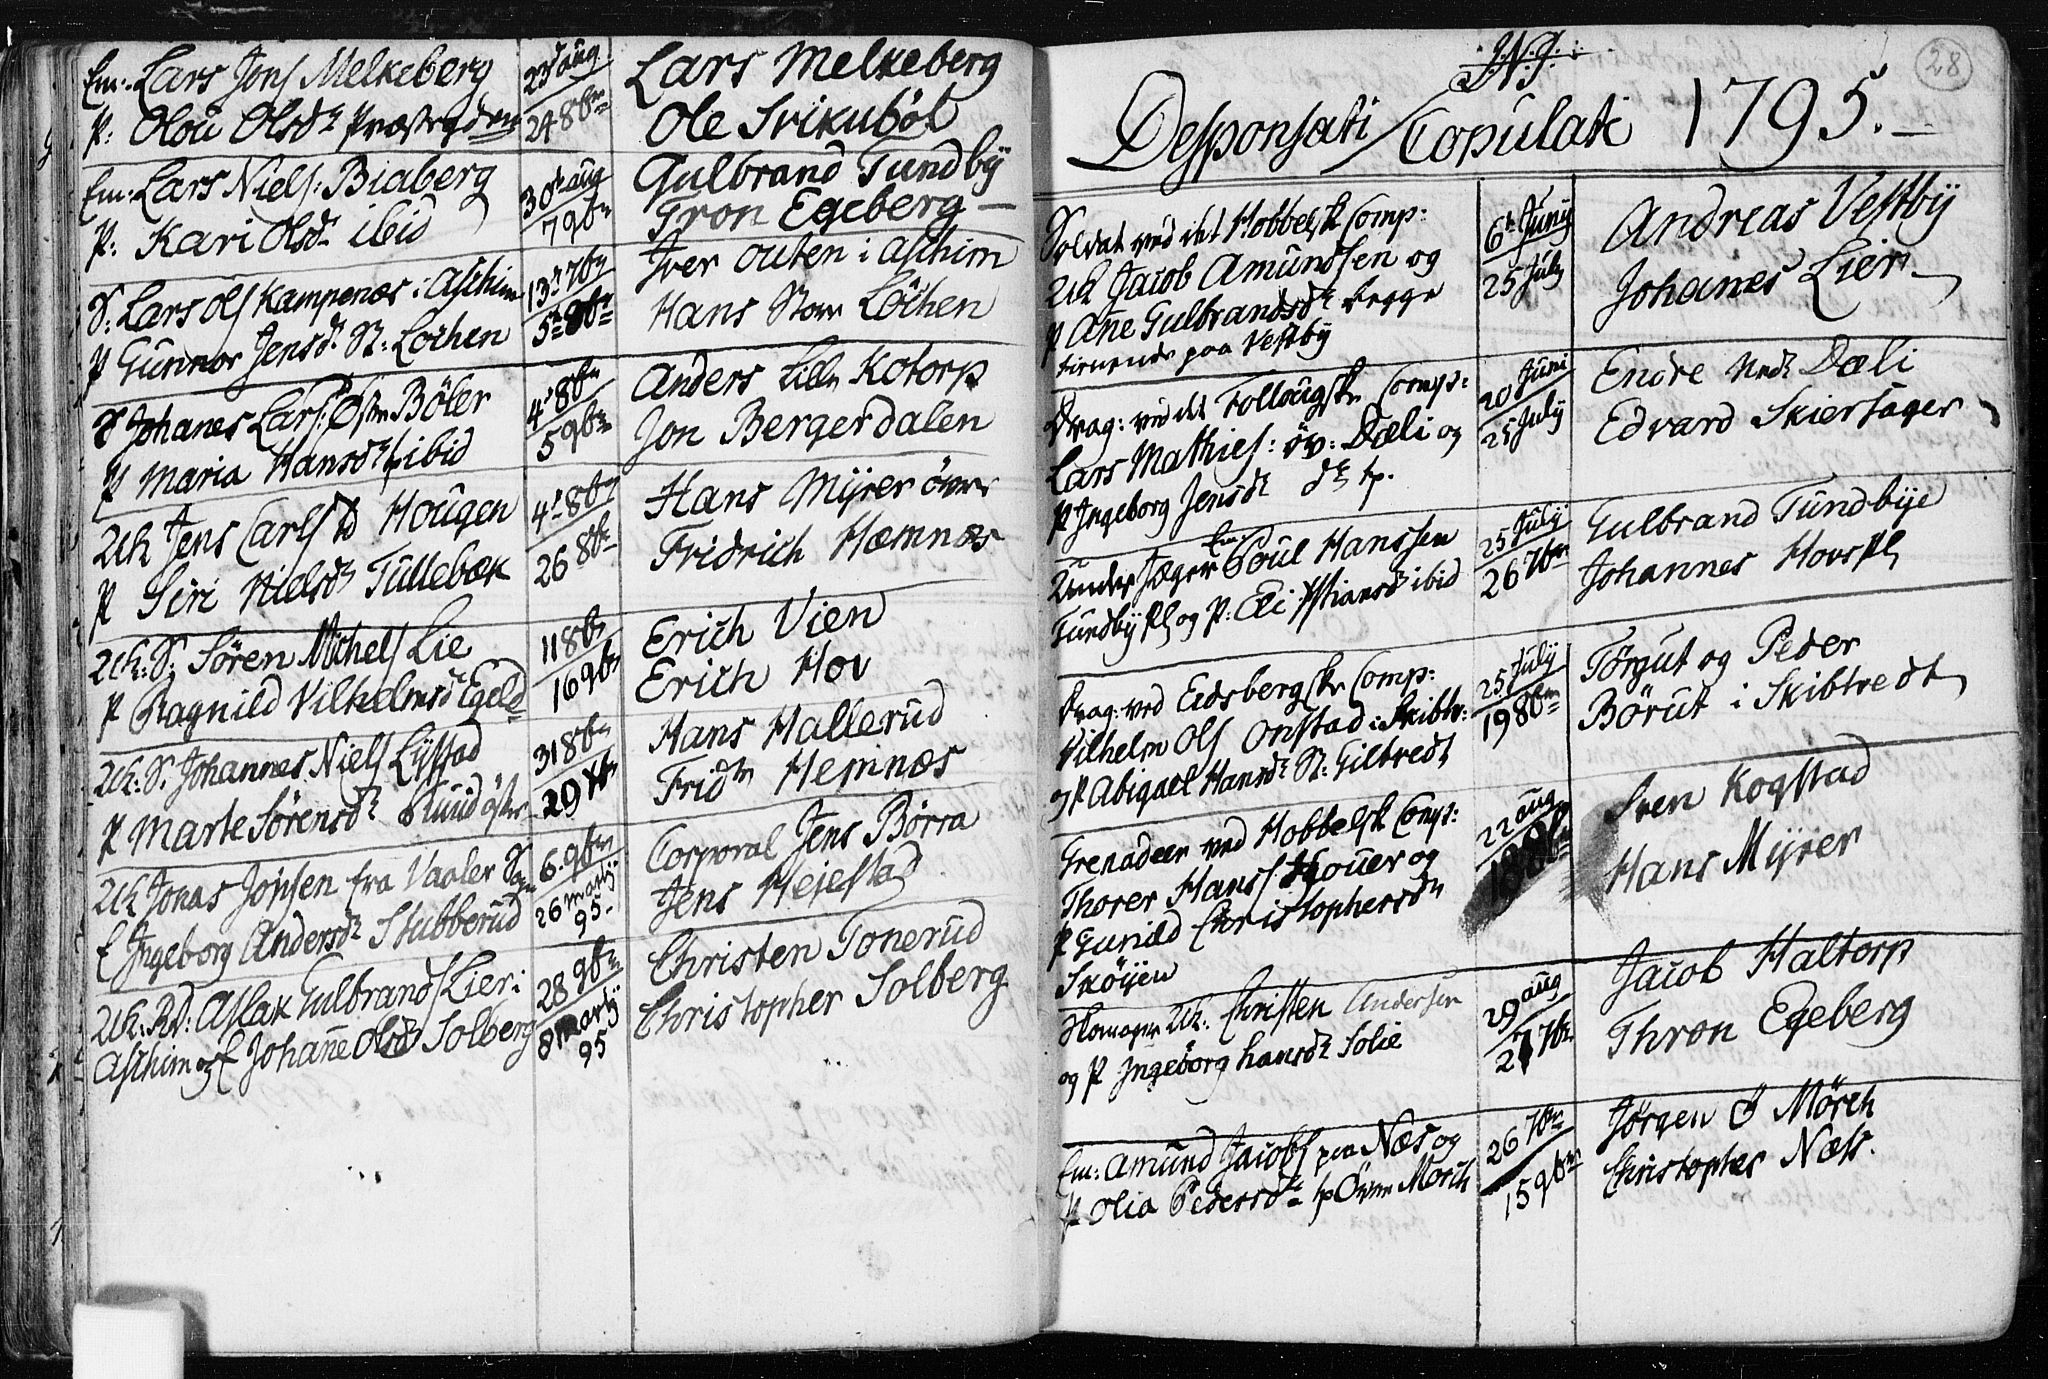 Em: Lars Jons Melkeberg
P: Olou Olsdr Præstegden
23d aug
24 8br
Lars Melkeberg
Ole Srikubøl
Em: Lars Niels: Biaberg
P: Kari Olsdr ibid
30t aug
7 9br
Gulbrand Tundbÿ
Tron Egeberg
S: Lars Ols Kampenæs i Aschim
P Gunnor Jensdr St: Lochen
13t 7br
5t 8br
Iver Outen i Aschim
Hans Store Lochen
S Johanes Lars: Østre Böler
P Maria Hansdr ibid
4t 8br
5 9br
Anders Lille Kotorp
Jon Bergerdalen
Uk Jens Carls Hougen
P Siri Nielsdr Tullebæk
4t 8br
26 8br
Hans Mÿrer övre
Fridrich Hæmnæs
Uk: S: Sören Michels Lie
P Ragnild Vilhelmsdr Egeb
11 8br
16 9br
Erich Vien
Erich Hov
Uk: S: Johannes Niels Lÿstad
P Marte Sörensdr Ruud östre
31 8br
29 Xbr
Hans Hallerud
Fridr Hemnæs
Uk Jonas Jonsen fra Vaaler Sogn
E Ingeborg Andersdr Stubberud
6 9br
26 martÿ
95
Corporal Jens Børra
Jens Hejestad
Uk: Rd: Aslak Gulbrands Lier i
Aschim og E Johanne Olsdr Solberg
28 9br
8 martÿ
95
Christen Tonerud
Christopher Solberg
28
J.N.J.
Desponsati / Copulati 1795.
Soldat ved det Hobbelske Comp:
Uk Jacob Amundsen og
P Ane Gulbrandsdr begge
tienende paa Vestbÿ
6t Junÿ
25 July
Andreas Vestbÿ
Johanes Lier
Drag: ved det Follougske Comp:
Lars Mathies: öv: Dæli og
P Ingeborg Jensdr
20 Juni
25 July
Endre Nedr Dæli
Edvard Skiersager
Under Jæger Em: Poul Hanssen
Tundbÿ Pl og P: Eli Xstiansdr ibid
25 Julÿ
26 7br
Gulbrand Tundbÿe
Johannes Hovspl
Drag: ved Eidsbergske Comp:
Vilhelm Ols Onstad i Skibtv:
og P Abigael Hansdr St: Gilbredt
25 Julÿ
19 8br
Törgut og Peder
Börut i Skibtvedt
Grenadeer ved Hobbelsk Comp:
Thorer Hans Skouer og
P Gunild Christophersdr
Sköyen
22 aug
18 8br
Sven Kogstad
Hans Mÿrer
Uk: Christen Andersen
og P Ingeborg Hansdr Solie
29 aug
27 7br
Jacob Haltorp
Thron Egeberg
Em: Amund Jacobs paa Næs og
P Olia Pedersdr Övre Mörch
26 7br
15 9br
Jörgen Ö Mörch
Christopher Næs.